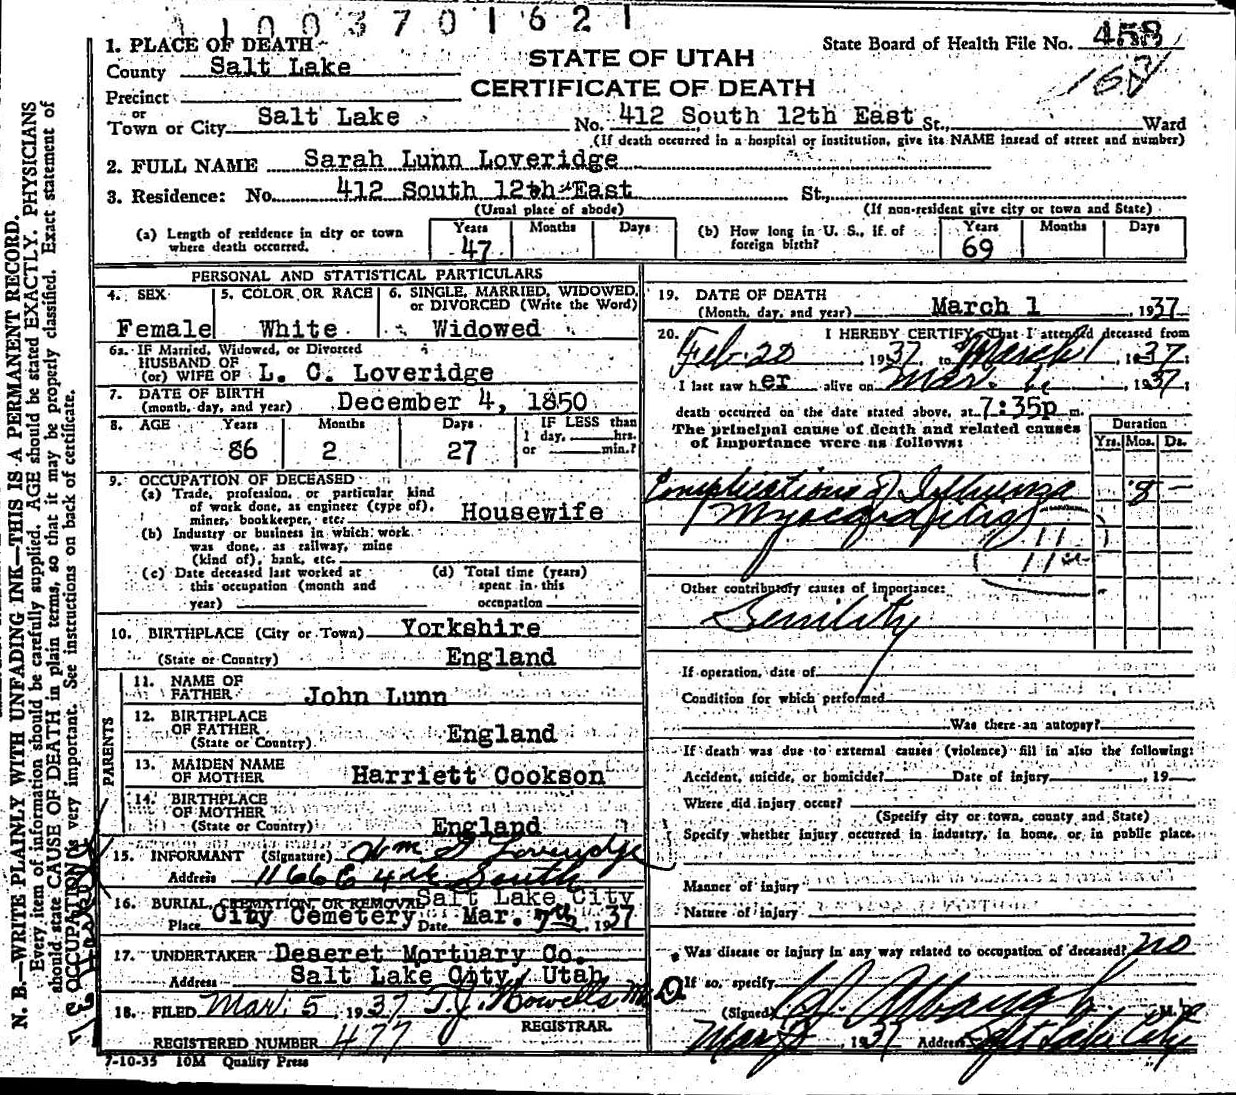 1003701621
1. PLACE OF DEATH
County Salt Lake
STATE OF UTAH
CERTIFICATE OF DEATH
State Board of Health File No. 458
Precinct
or
Town or City Salt Lake No. 412 South 12th East St., Ward
(If death occurred in a hospital or institution, give its NAME insead of street and number)
2. FULL NAME Sarah Lunn Loveridge
3. Residence: No. 412 South 12th East St.,
(Usual place of abode) (If non-resident give city or town and State)
(a) Length of residence in city or town where death occurred. Years 47 Months Days
(b) How long in U. S., if of foreign birth? Years 69 Months Days
PERSONAL AND STATISTICAL PARTICULARS
4. SEX Female
5. COLOR OR RACE White
6. SINGLE, MARRIED, WIDOWED, or DIVORCED (Write the Word) Widowed
6a. IF Married, Widowed, or Divorced
HUSBAND OF
(or) WIFE OF L. C. Loveridge
7. DATE OF BIRTH
(month, day, and year) December 4, 1850
8. AGE Years 86 Months 2 Days 27 IF LESS than 1 day, hrs. or min.?
9. OCCUPATION OF DECEASED
(a) Trade, profession, or particular kind
of work done, as engineer (type of),
miner, bookkeeper, etc. Housewife
(b) Industry or business in which work
was done, as railway, mine
(kind of), bank, etc.
(c) Date deceased last worked at
this occupation (month and
year)
(d) Total time (years)
spent in this
occupation
10. BIRTHPLACE (City or Town) Yorkshire
(State or Country) England
PARENTS
11. NAME OF
FATHER John Lunn
12. BIRTHPLACE
OF FATHER
(State or Country) England
13. MAIDEN NAME
OF MOTHER Harriett Cookson
14. BIRTHPLACE
OF MOTHER
(State or Country) England
15. INFORMANT (Signature) Wm G Loveridge
Address 1166 E 4th South
16. BURIAL, CREMATION OR REMOVAL Salt Lake City
Place City Cemetery Date Mar. 7th, 1937
17. UNDERTAKER Deseret Mortuary Co.
Address Salt Lake City, Utah
18. FILED Mar. 5, 1937 T. J. Howells M.D.
REGISTRAR.
REGISTERED NUMBER 477
7-10-35 10M Quality Press
19. DATE OF DEATH
(Month, day, and year) March 1, 1937
20. I HEREBY CERTIFY, That I attended deceased from
Feb. 20 1937 to March 1, 1937
I last saw her alive on Mar. 1, 1937;
death occurred on the date stated above, at 7:35p m.
The principal cause of death and related causes
of importance were as follows:
Duration
Yrs. Mos. Ds.
Complications of Influenza 8 –
Myocarditis
11
11
Other contributory causes of importance:
Senility
If operation, date of
Condition for which performed
Was there an autopsy?
If death was due to external causes (violence) fill in also the following:
Accident, suicide, or homicide? Date of injury , 19
Where did injury occur?
(Specify city or town, county and State)
Specify whether injury occurred in industry, in home, or in public place.
Manner of injury
Nature of injury
Was disease or injury in any way related to occupation of deceased? no
If so, specify
(Signed) Albaugh M. D.
Mar 3, 1937 Address Salt Lake City
N. B.—WRITE PLAINLY WITH UNFADING INK—THIS IS A PERMANENT RECORD.
Every item of information should be carefully supplied. AGE should be stated EXACTLY. PHYSICIANS
should state CAUSE OF DEATH in plain terms, so that it may be properly classified. Exact statement of
OCCUPATION is very important. See instructions on back of certificate.